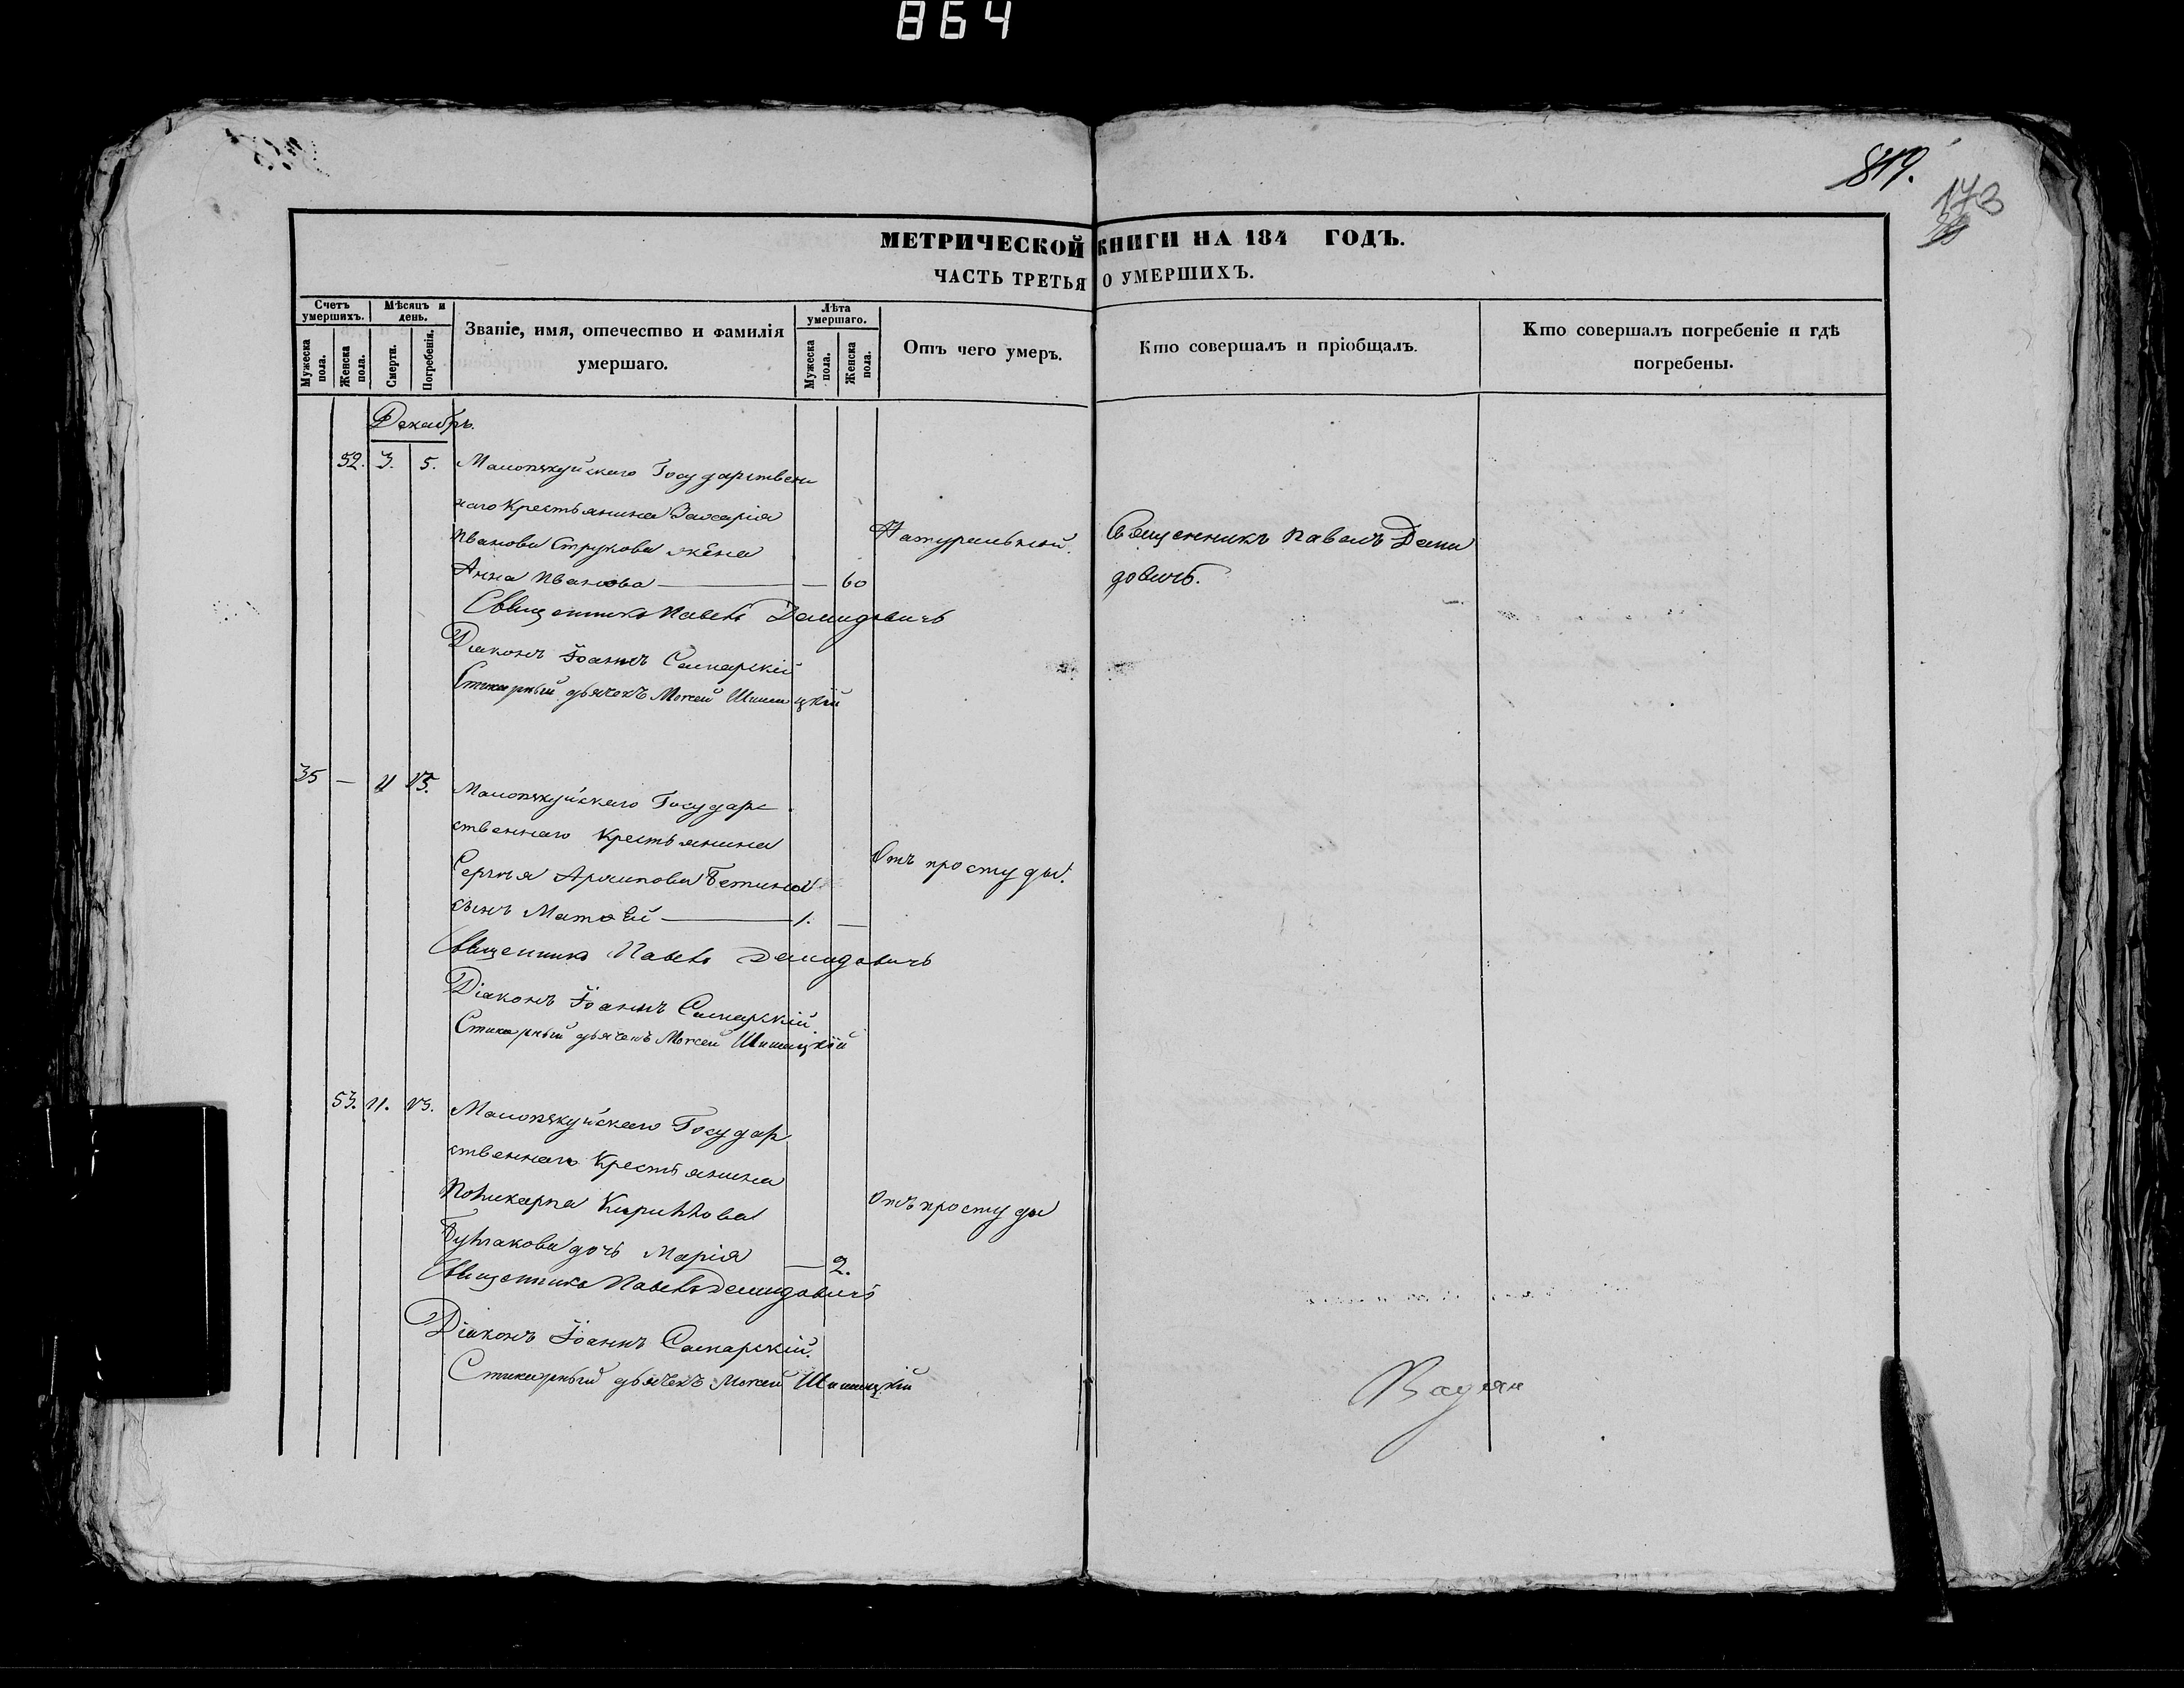 864
819.
173
МЕТРИЧЕСКОЙ КНИГИ НА 184 ГОДЪ.
ЧАСТЬ ТРЕТЬЯ О УМЕРШИХЪ.
Счетъ умершихъ.
Мужеска пола.
Женска пола.
Мѣсяцъ и день.
Смерти.
Погребенія.
Званіе, имя, отечество и фамилія умершаго.
Лѣта умершаго.
Мужеска пола.
Женска пола.
Отъ чего умеръ.
Кто совершалъ и пріобщалъ.
Кто совершалъ погребеніе и гдѣ погребены.
Декабрь.
52. 3. 5. Государствен
наго Крестьянина Захарія
Иванова Струкова жена
Анна Иванова — — 60
Натуральной.
Священникъ Павелъ Деми
довичъ.
Священникъ Павелъ Демидовичъ
Діаконъ Іоаннъ Самарскій
Стихарный дьячекъ Моисей
35 — 11 13. Государ
ственнаго Крестьянина
Сергія Архипова
сынъ Матвѣй — 1. —
Отъ простуды.
Священникъ Павелъ Демидовичъ
Діаконъ Іоаннъ Самарскій.
Стихарный дьячекъ Моисей
53. 11. 13. Государ
ственнаго Крестьянина
Поликарпа Кириллова
Булгакова дочь Марія — 2.
Отъ простуды
Священникъ Павелъ Демидовичъ
Діаконъ Іоаннъ Самарскій.
Стихарный дьячекъ Моисей